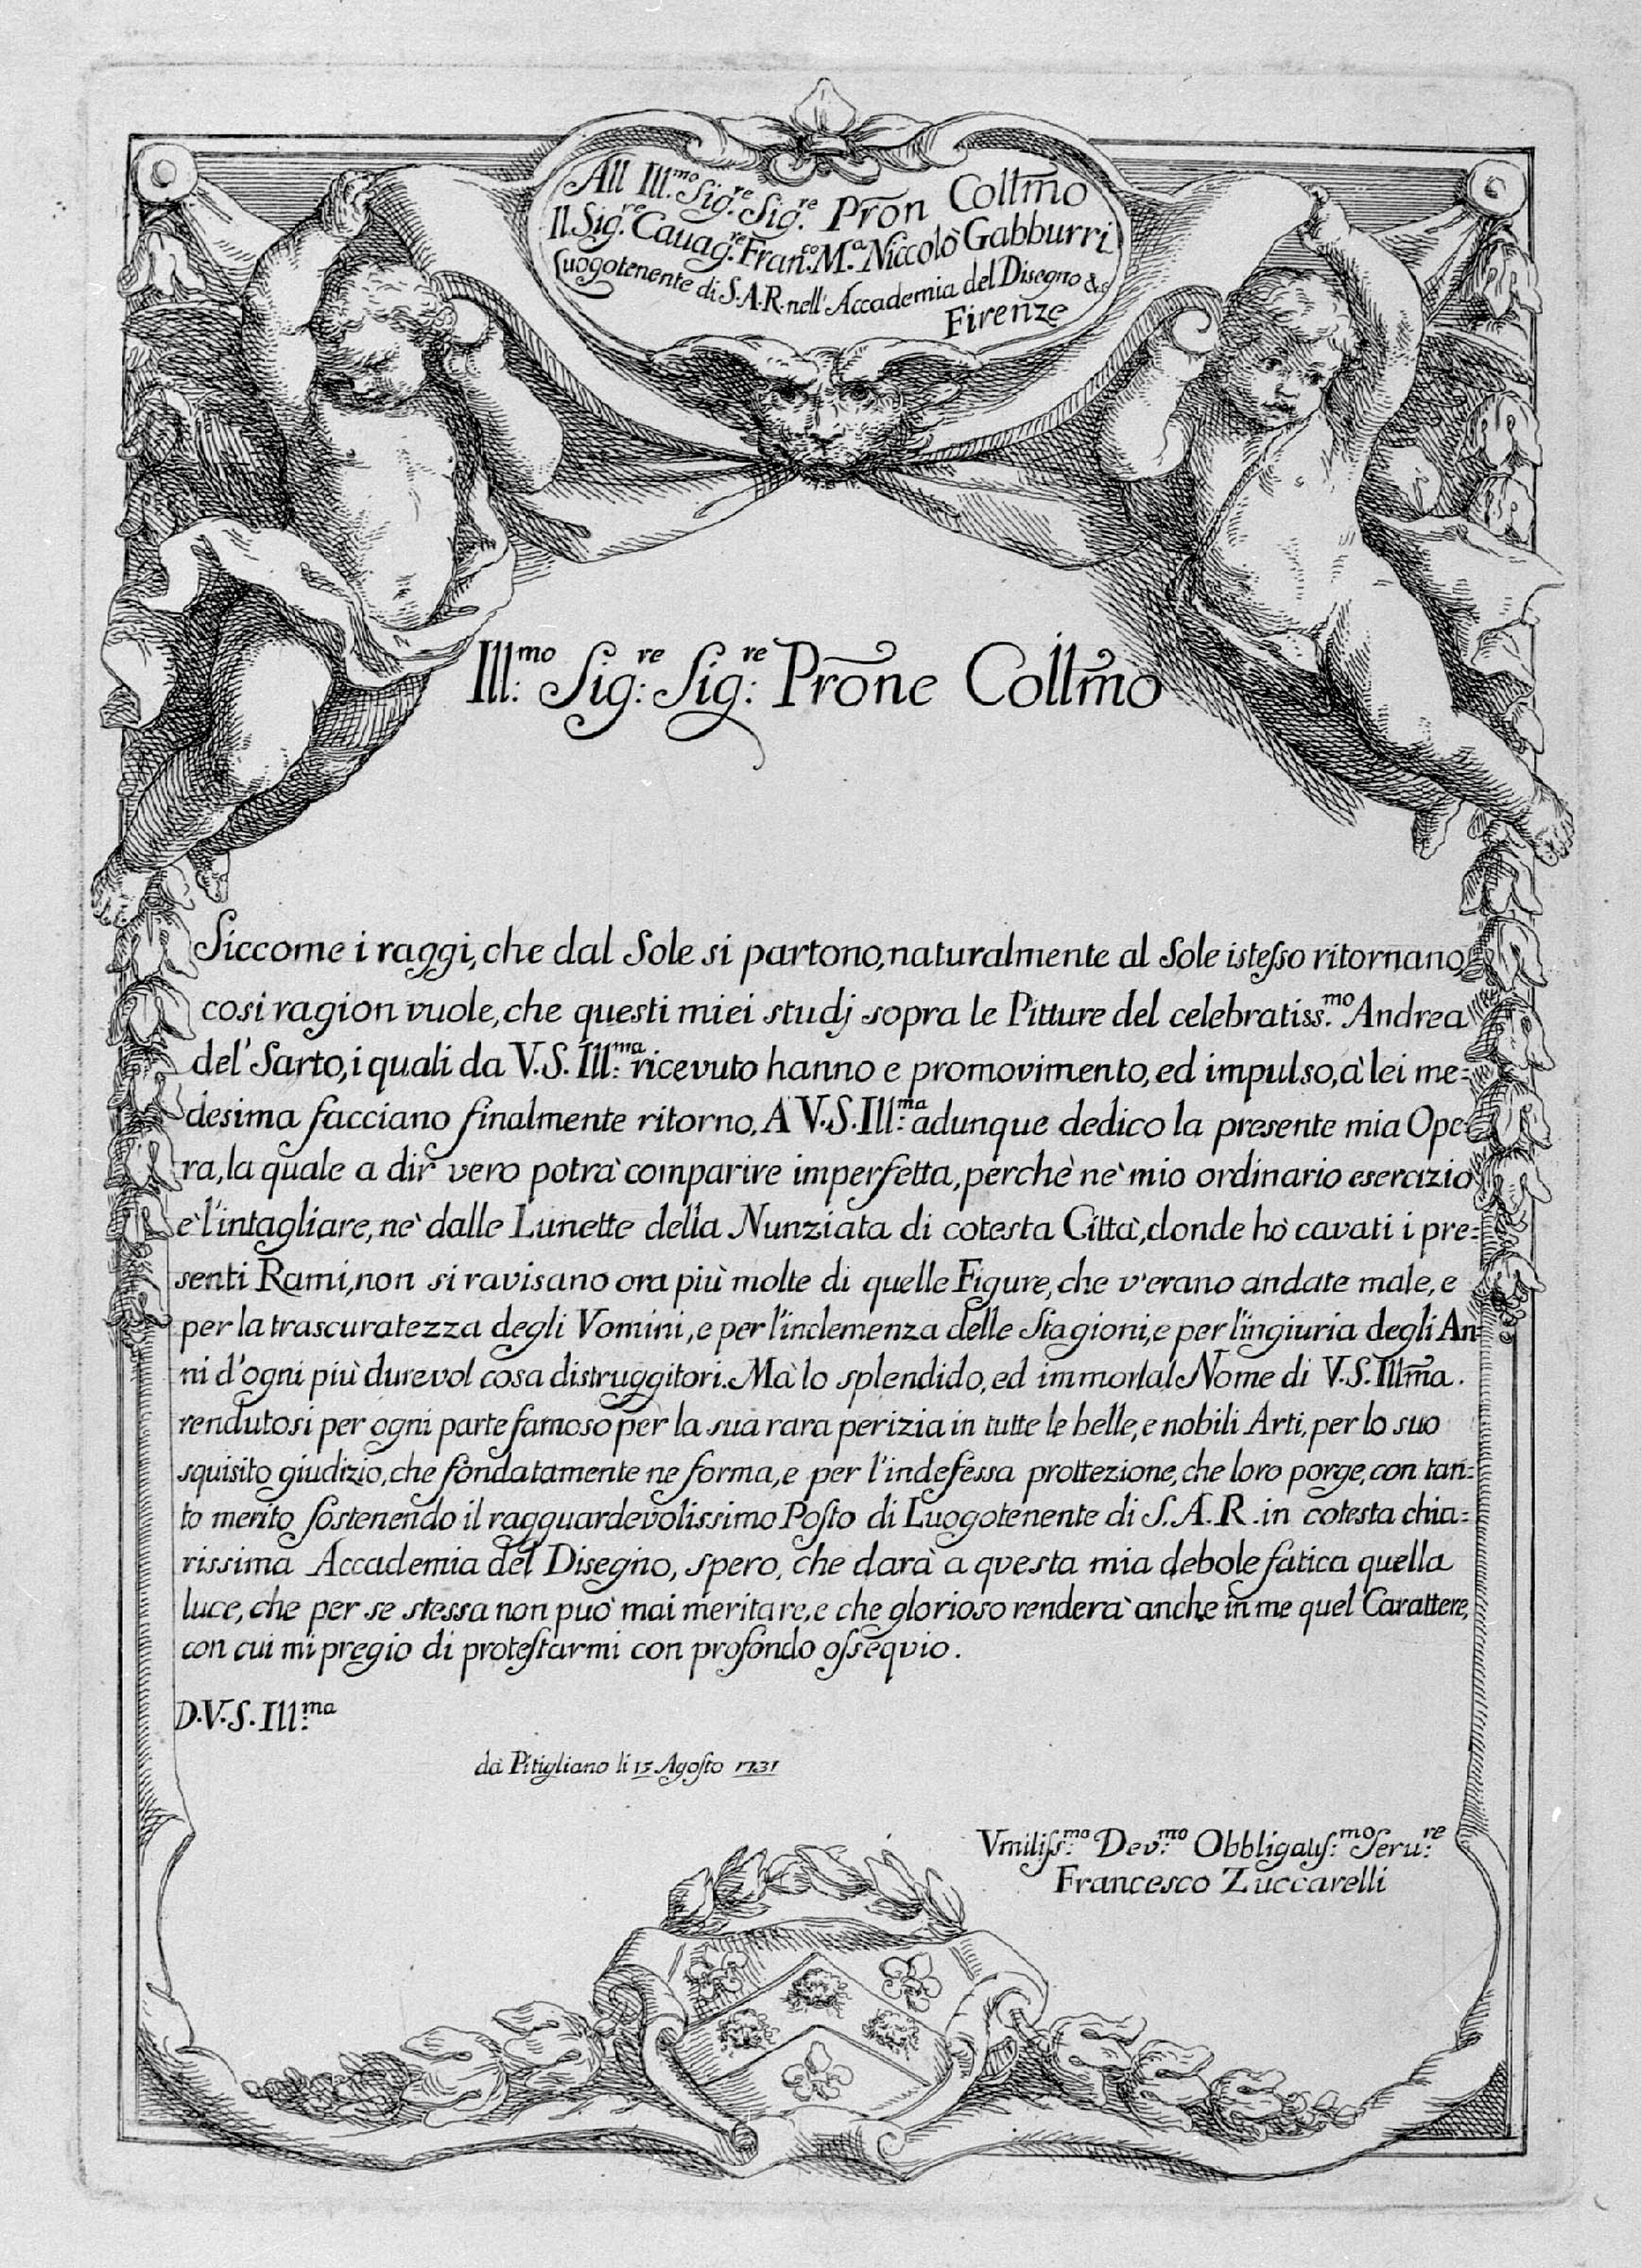 All Ill.mo Sig.re Sig.re Pron Colltmo
Il Sig.re Cauag.re Fran.co M.a Niccolò Gabburri
Luogotenente di S.A.R. nell' Accademia del Disegno &c
Firenze
Ill.mo Sig.re Sig.re Prone Colltmo
Siccome i raggi, che dal Sole si partono, naturalmente al Sole istesso ritornano,
cosi ragion vuole, che questi miei studj sopra le Pitture del celebratiss.mo Andrea
del' Sarto, i quali da V.S. Ill.ma ricevuto hanno e promovimento, ed impulso, à lei me=
desima facciano finalmente ritorno. A V.S. Ill.ma adunque dedico la presente mia Ope=
ra, la quale a dir vero potrà comparire imperfetta, perchè nè mio ordinario esercizio
è l'intagliare, nè dalle Lunette della Nunziata di cotesta Città, donde hò cavati i pre=
senti Rami, non si ravisano ora più molte di quelle Figure, che v'erano andate male, e
per la trascuratezza degli Vomini, e per l'inclemenza delle Stagioni, e per l'ingiuria degli An=
ni d'ogni più durevol cosa distruggitori. Mà lo splendido, ed immortal Nome di V.S. Illma.
rendutosi per ogni parte famoso per la sua rara perizia in tutte le belle, e nobili Arti, per lo suo
squisito giudizio, che fondatamente ne forma, e per l'indefessa prottezione, che loro porge, con tan=
to merito sostenendo il ragguardevolissimo Posto di Luogotenente di S.A.R. in cotesta chia=
rissima Accademia del Disegno, spero, che darà a questa mia debole fatica quella
luce, che per se stessa non può mai meritare, e che glorioso renderà anche in me quel Carattere,
con cui mi pregio di protestarmi con profondo ossequio.
D.V.S. Ill.ma
da Pitigliano li 15 Agosto 1731
Vmiliss.mo Dev.mo Obbligatiss.mo Seru.re
Francesco Zuccarelli